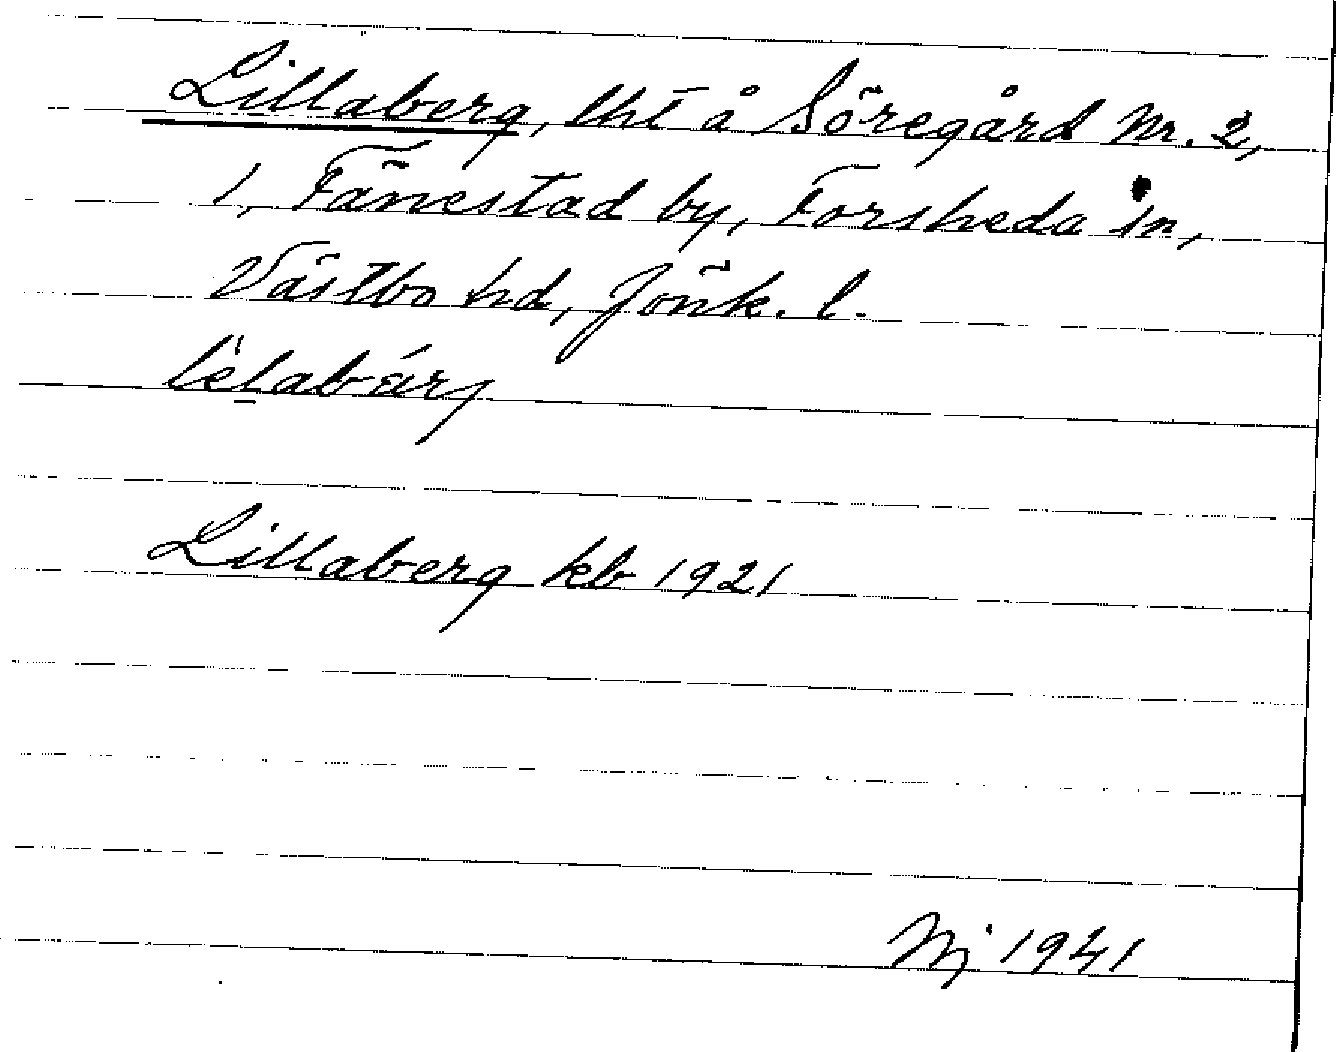 Lillaberg, lht å Söregård Nr. 2,
1, Fänestad by, Forsheda sn,
Västbo hd, Jönk. l.
Lillaberg kb 1921
Nj 1941